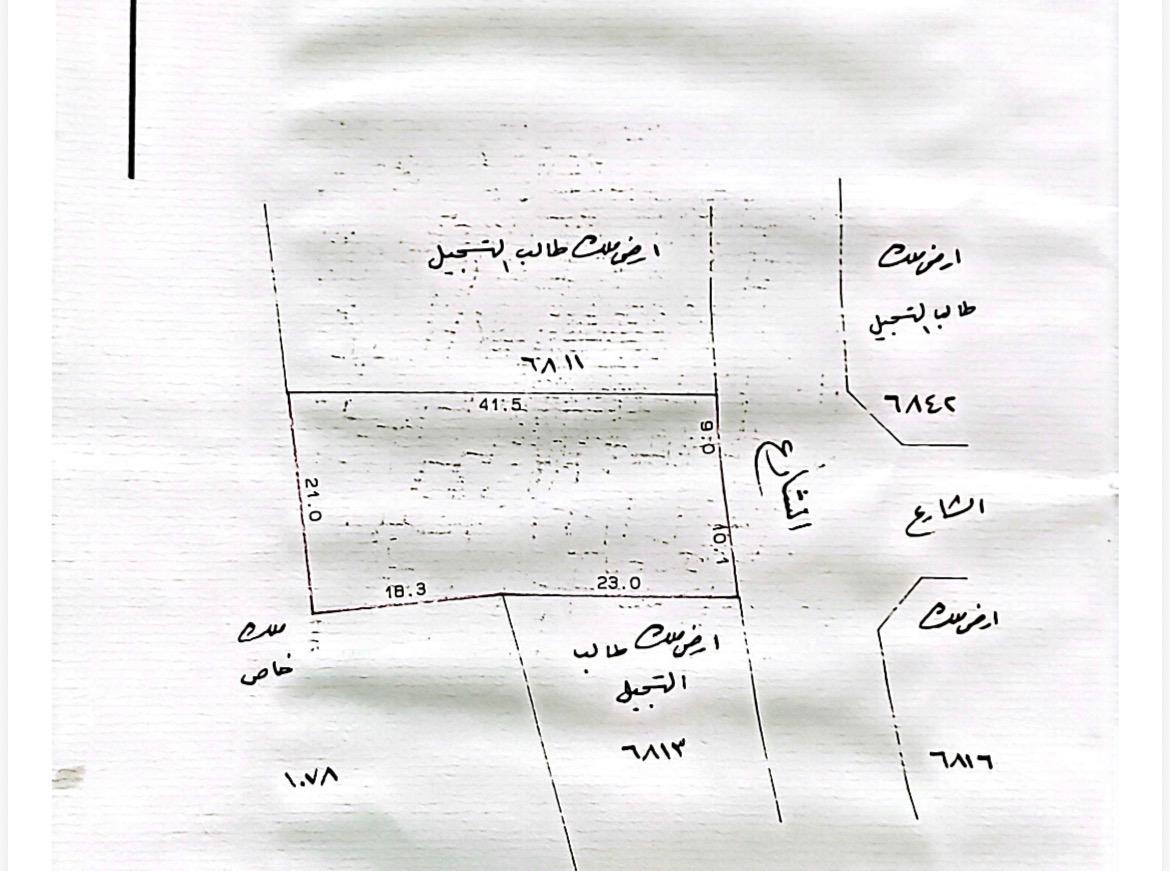 ارض ملك طالب التسجيل
٦٨١١
ارض ملك
طالب التسجيل
٦٨٤٢
41.5
9.0
10.1
21.0
18.3
23.0
الشارع
الشارع
ملك
خاص
١٠٧٨
ارض ملك طالب
التسجيل
٦٨١٣
ارض ملك
٦٨١٦